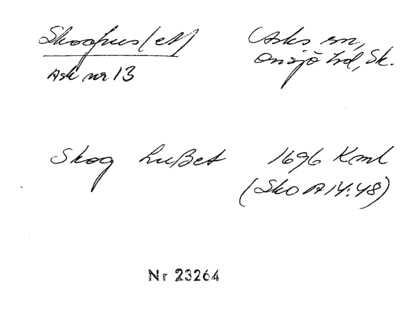 Skoghus(et) Asks sn,
Ask nr 13 Onsjö hd, Sk.
Skog hußet 1696 Kml
(Sko A 14:48)
Nr 23264